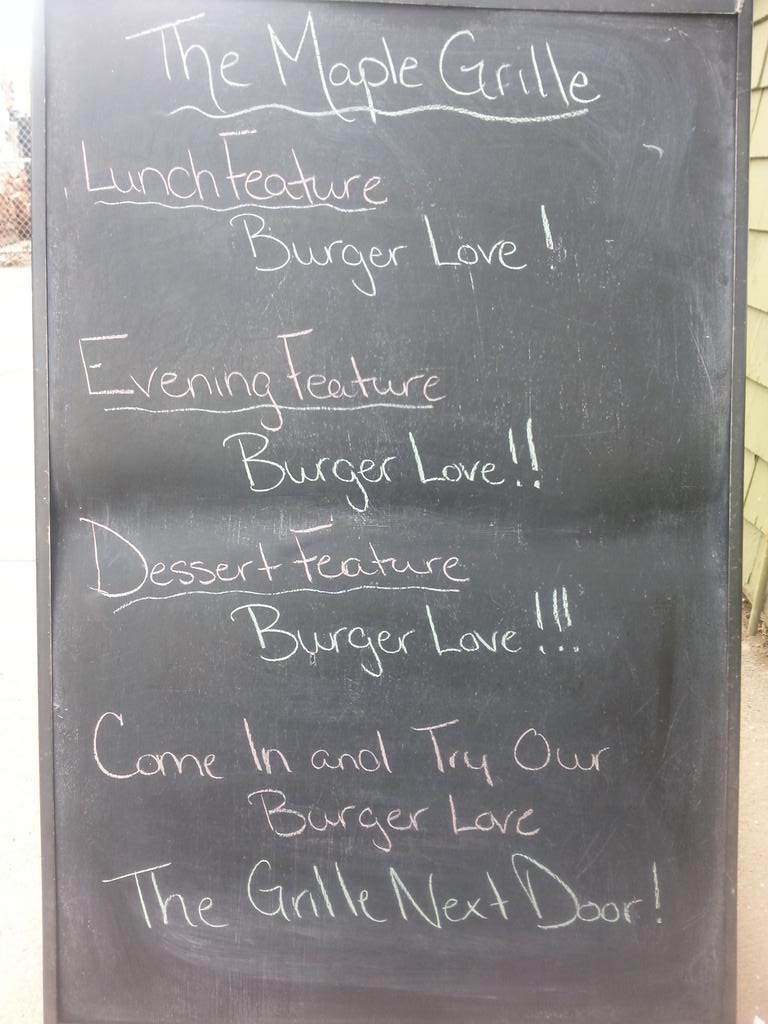 The Maple Grille
Lunch Feature
Burger Love!
Evening Feature
Burger Love!!
Dessert Feature
Burger Love!!!
Come In and Try Our
Burger Love
The Grille Next Door!